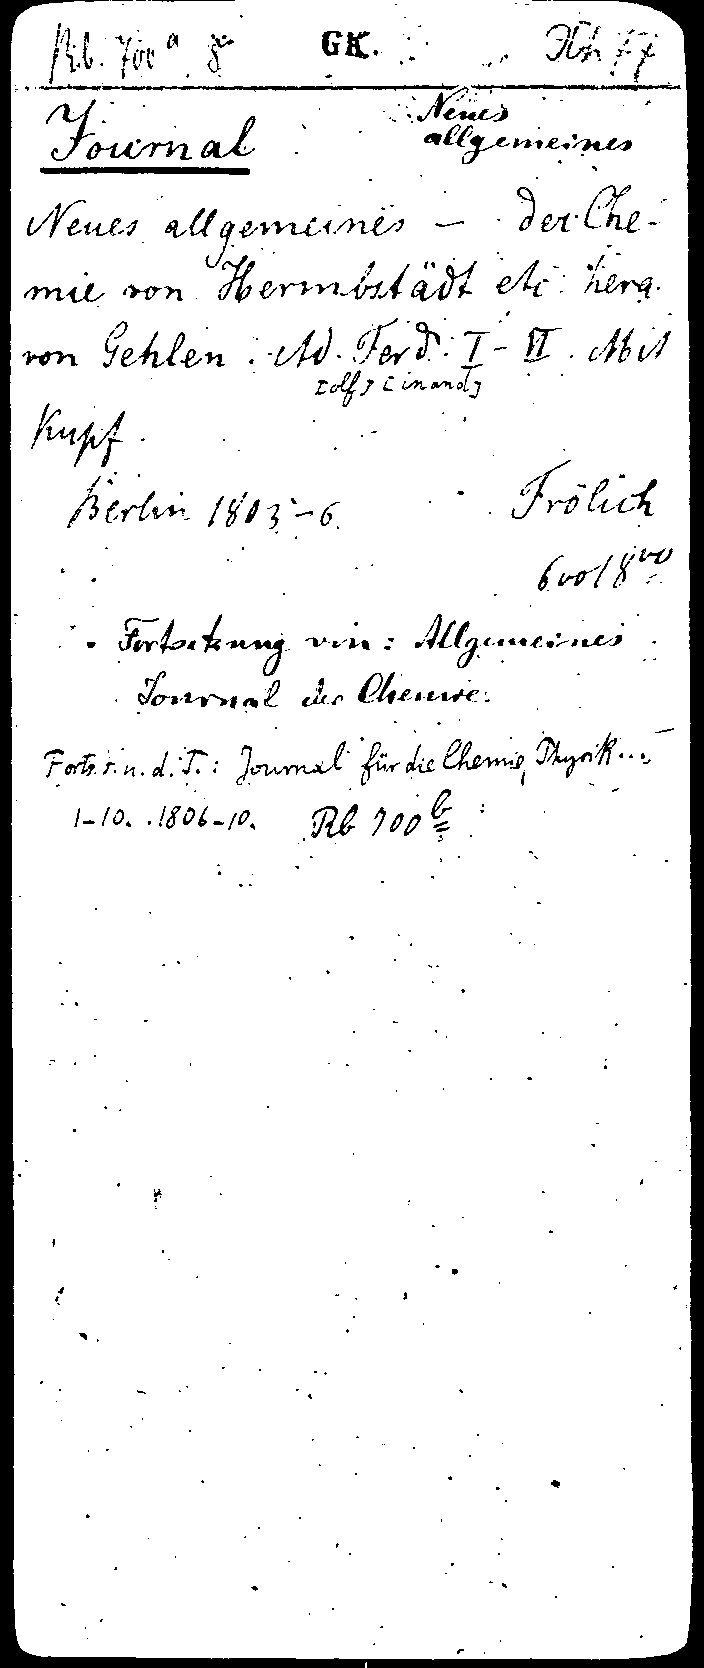 Rb. 700a 8vo GK.
Journal Neues
allgemeines
Neues allgemeines — der Che-
mie von Hermbstädt etc. herg.
von Gehlen. Ad. Ferd. I-VI. Mit
[olf] [inand]
Kupf.
Berlin 1803-6. Frölich
6 vol 8vo
Fortsetzung von: Allgemeines
Journal der Chemie.
Forts. s. u. d. T.: Journal für die Chemie, Physik...
1-10. 1806-10. Rb 700 b